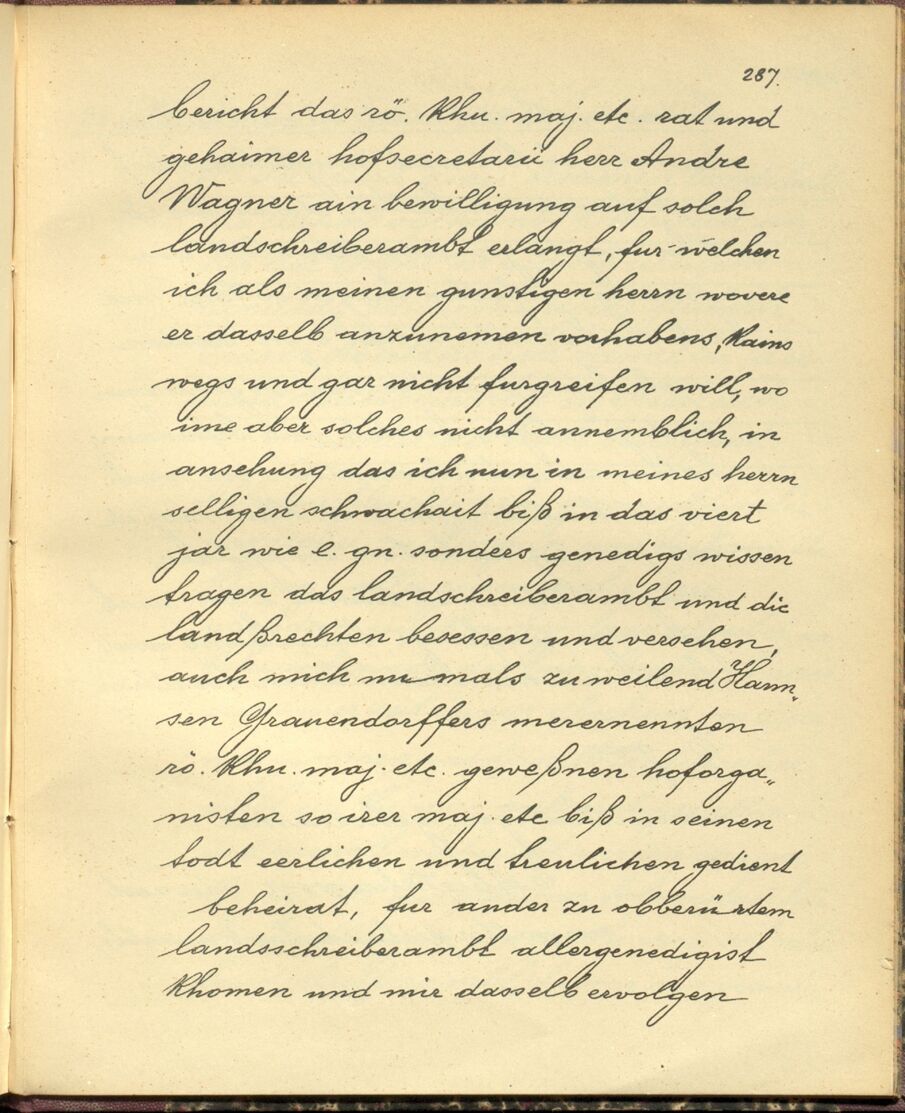 287.
bericht das rö. Khu. maj. etc. rat und
gehaimer hofsecretarii herr Andre
Wagner ain bewilligung auf solch
landschreiberambt erlangt, fur welchen
ich als meinen gunstigen herrn wovere
er dasselb anzunemen vorhabens, Kains
wegs und gar nicht furgreifen will, wo
ime aber solches nicht annemblich, in
ansehung das ich nun in meines herrn
selligen schwachait biß in das viert
jar wie e. gn. sonders genedigs wissen
tragen das landschreiberambt und die
landßrechten besessen und versehen,
auch mich nu mals zu weilend Hann„
sen Grauendorffers merernennten
rö. Khu. maj. etc. geweßnen hoforga„
nisten so irer maj. etc biß in seinen
todt eerlichen und treulichen gedient
beheirat, fur ander zu obberürtem
landsschreiberambt allergenedigist
Khomen und mir dasselb ervolgen